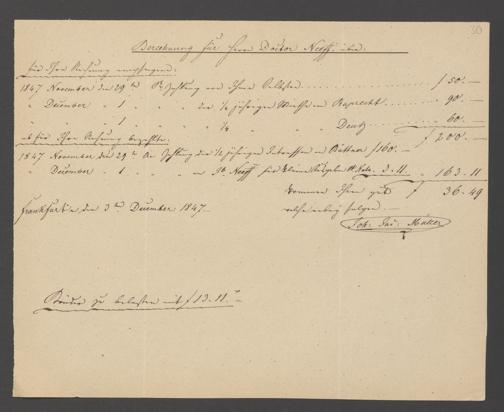 30
Berechnung für Herrn Doctor Neeff über.
für Ihre Rechnung empfangen:
1847 November den 29ten Bezahlung von Ihnen Selbsten f 50.—
" December " 1 " " der ½ jährigen Miethe von Ruprecht 90.—
" " " 1 " " " ½ " " " Deutz 60.—
f 200.—
ab für Ihre Rechnung bezahlte:
1847 November den 29te An Zahlung der ½ jährigen Interessen an Büttner f 160.—
" December " 1 " " an Neeff für kleine Ausgaben Nota 3.11 " 163.11
kommen Ihnen gut f 36.49
welche anbey folgen.—
Frankfurt a/m den 3ten December 1847
Joh. Jac. Müller
Bruder zu belasten mit f 13.11.